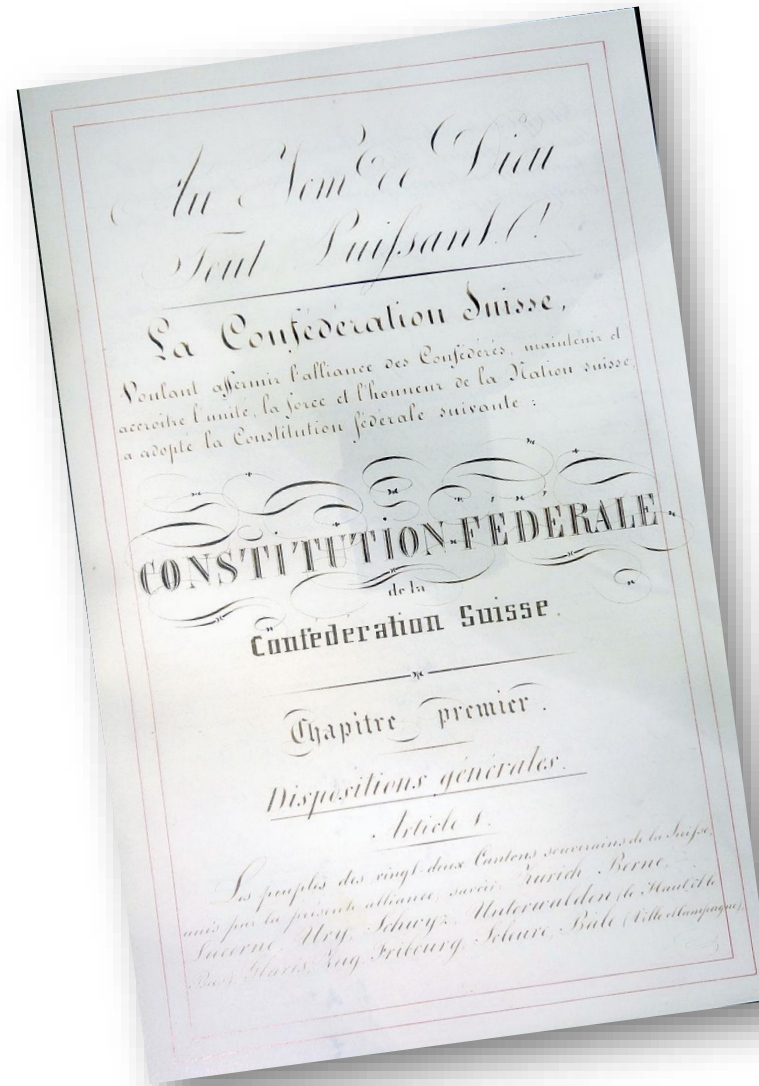 Au Nom de Dieu
Tout Puissant!
La Confédération Suisse,
Voulant affermir l'alliance des Confédérés, maintenir et
accroître l'unité, la force et l'honneur de la Nation suisse,
a adopté la Constitution fédérale suivante :
CONSTITUTION FÉDÉRALE
de la
Confédération Suisse.
Chapitre premier.
Dispositions générales.
Article 1.
Les peuples des vingt-deux Cantons souverains de la Suisse,
unis par la présente alliance, savoir: Zurich, Berne,
Lucerne, Ury, Schwyz, Unterwalden (le Haut et le
Bas), Glaris, Zug, Fribourg, Soleure, Bâle (Ville et Campagne),